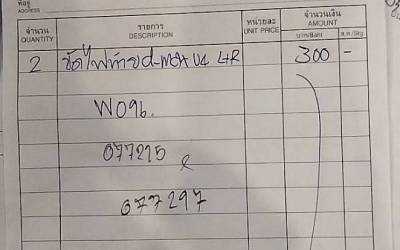 ที่อยู่
ADDRESS
จำนวน QUANTITY รายการ DESCRIPTION หน่วยละ UNIT PRICE จำนวนเงิน AMOUNT
บาท/Baht ส.ต./Stg.
2 ขัดไฟท้าย d-max 4R 300 -
W096
077215
077297